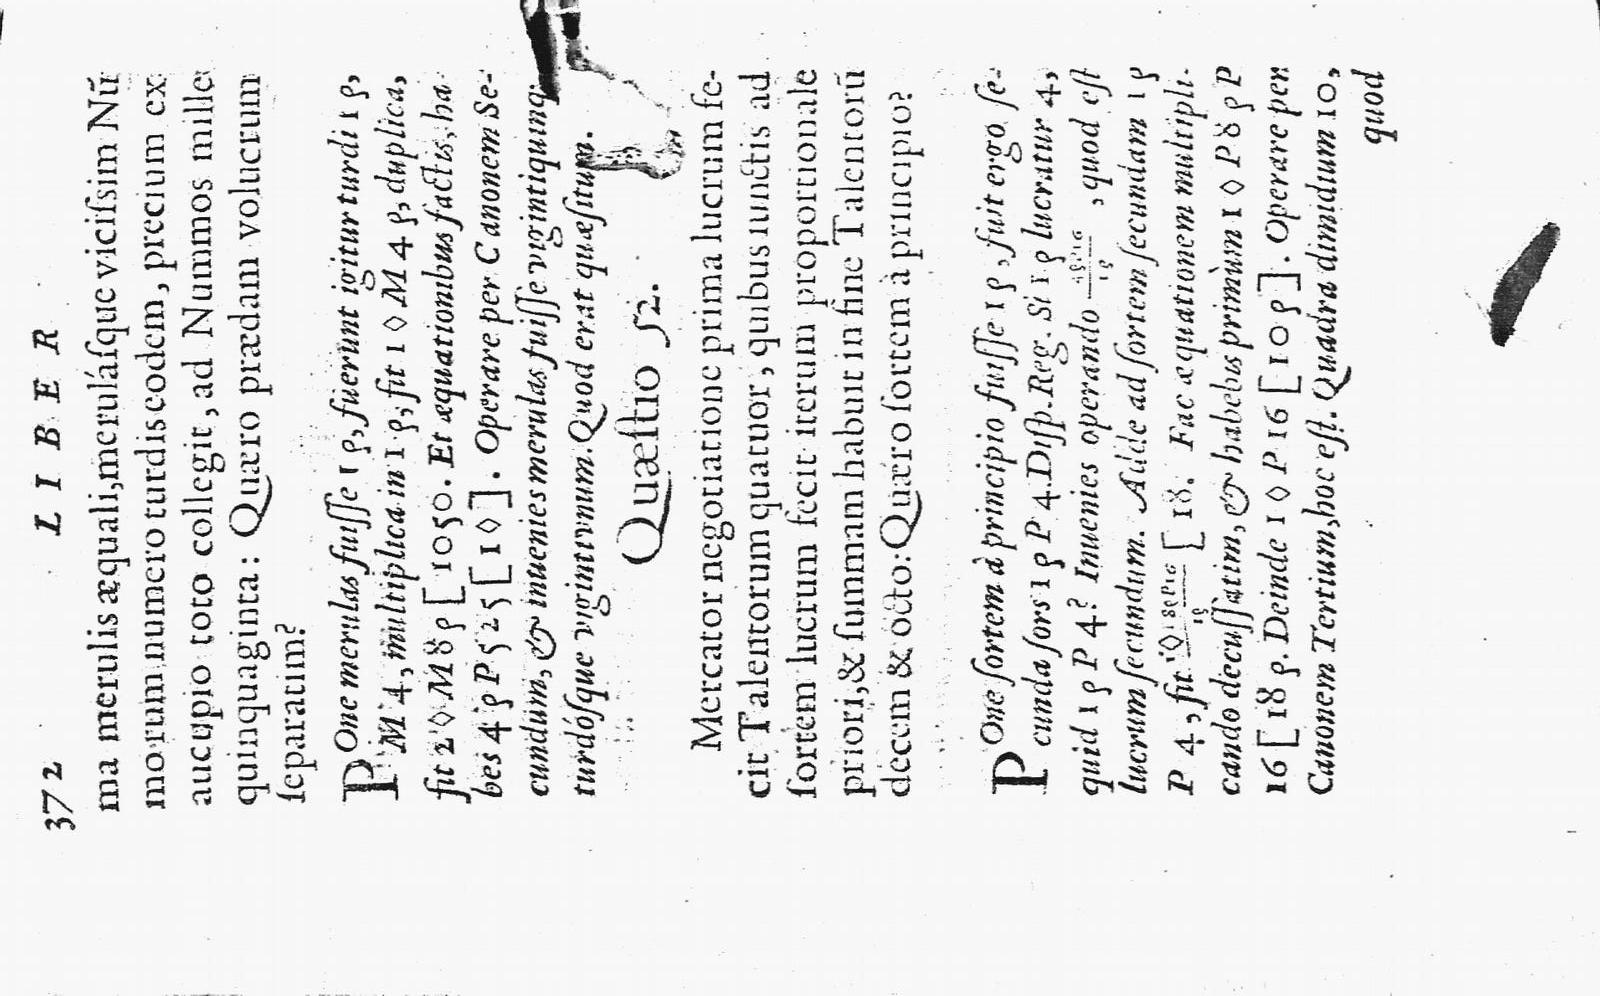 372 LIBER
ma merulis æquali, merulásque vicißim Nũ
morum numero turdis eodem, precium ex
aucupio toto collegit, ad Nummos mille
quinquaginta: Quæro prædam volucrum
ſeparatim?
POne merulas fuiſſe 1 ρ, fuerunt igitur turdi 1 ρ,
M 4, multiplica in 1 ρ, fit 1 ◊ M 4 ρ, duplica,
fit 2 ◊ M 8 ρ [ 1050. Et æquationibus factis, ha-
bes 4 ρ P 525 [ 1 ◊ ]. Operare per Canonem Se-
cundum, & inuenies merulas fuiſſe viginti quinq;
turdóſque viginti vnum. Quod erat quæſitum.
Quæſtio 52.
Mercator negotiatione prima lucrum fe-
cit Talentorum quatuor, quibus iunctis ad
ſortem lucrum fecit iterum proportionale
priori, & ſummam habuit in fine Talentorũ
decem & octo: Quæro ſortem à principio?
POne ſortem à principio fuiſſe 1 ρ, fuit ergo ſe-
cunda ſors 1 ρ P 4. Diſp. Reg. Si 1 ρ lucratur 4,
quid 1 ρ P 4? Inuenies operando 4ρP16/1ρ, quod eſt
lucrum ſecundum. Adde ad ſortem ſecundam 1 ρ
P 4, fit 1◊P8ρP16/1ρ [ 18. Fac æquationem multipli-
cando decuſſatim, & habebis primùm 1 ◊ P 8 ρ P
16 [ 18 ρ. Deinde 1 ◊ P 16 [ 10 ρ ]. Operare per
Canonem Tertium, hoc eſt. Quadra dimidium 10,
quod